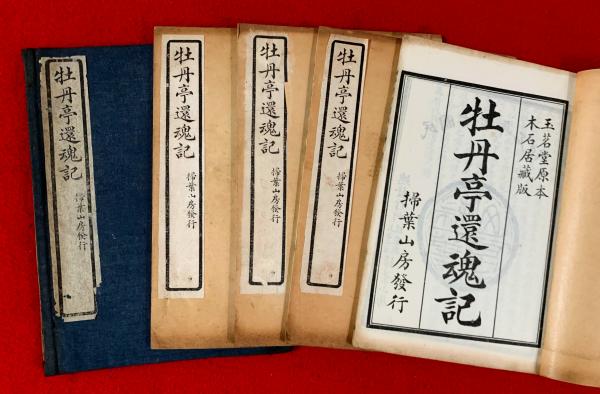 牡丹亭還魂記
掃葉山房發行
牡丹亭還魂記
掃葉山房發行
牡丹亭還魂記
掃葉山房發行
牡丹亭還魂記
掃葉山房發行
玉茗堂原本
木石居藏版
牡丹亭還魂記
掃葉山房發行